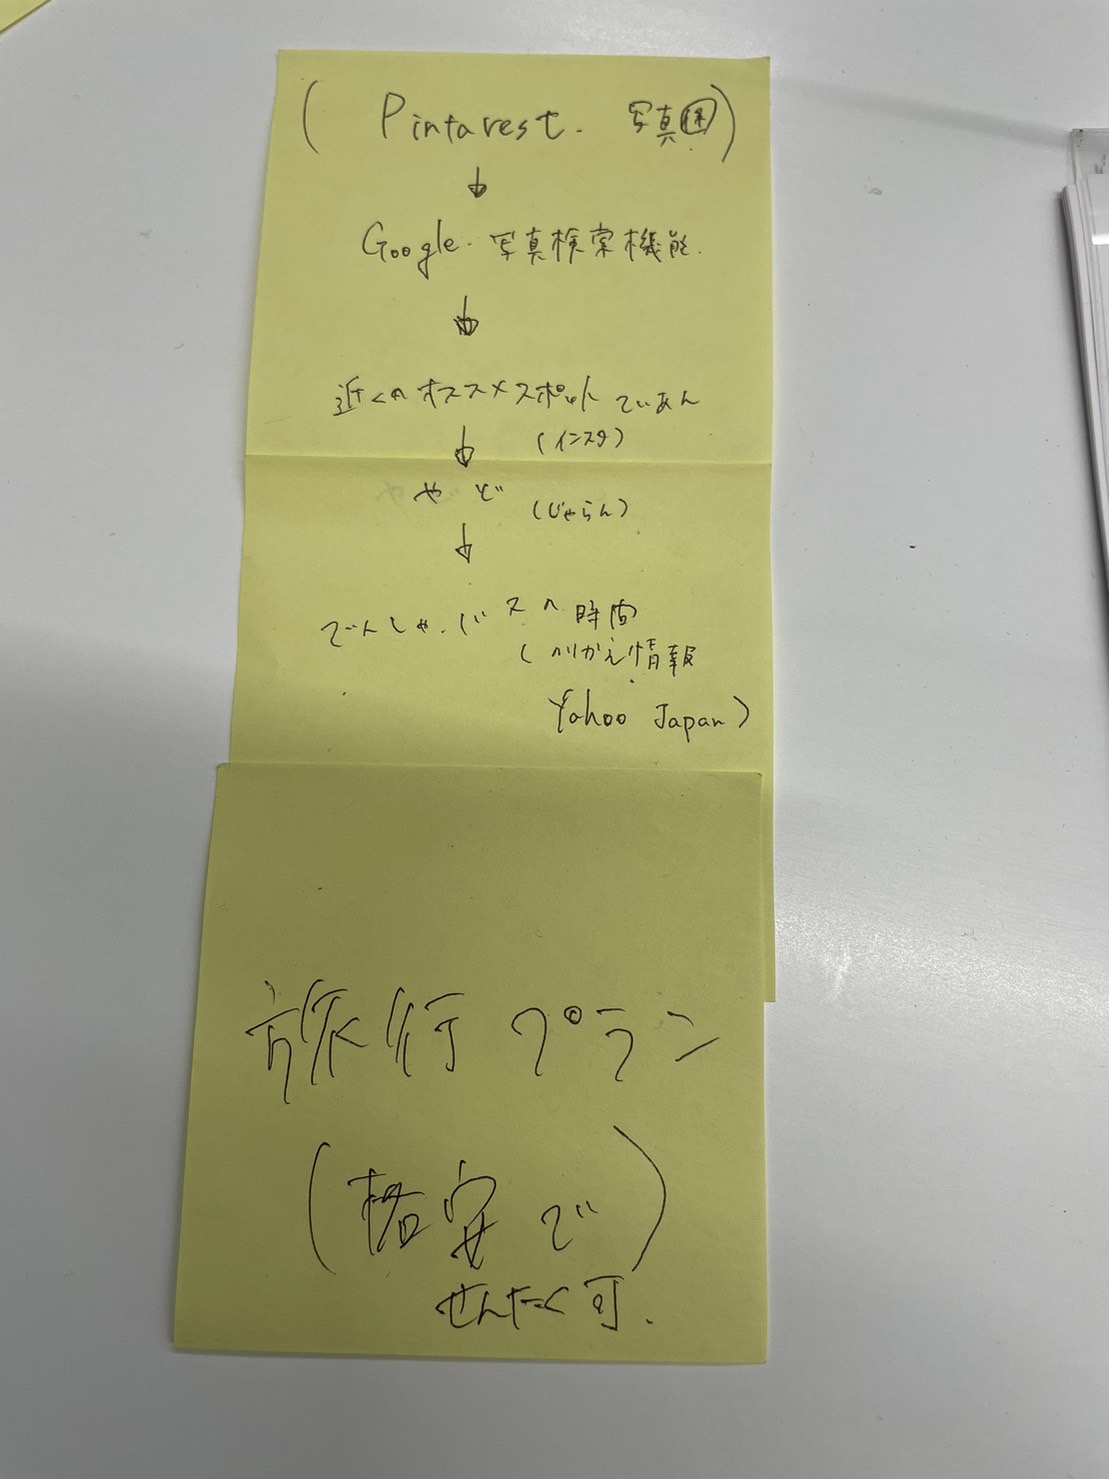 ( Pintarest. 写真 )
Google. 写真検索機能.
近くのオススメスポットていあん
(インスタ)
やど
(じゃらん)
でんしゃ.バスの時間
(のりかえ情報
Yahoo Japan)
旅行プラン
(格安で)
せんたく可.